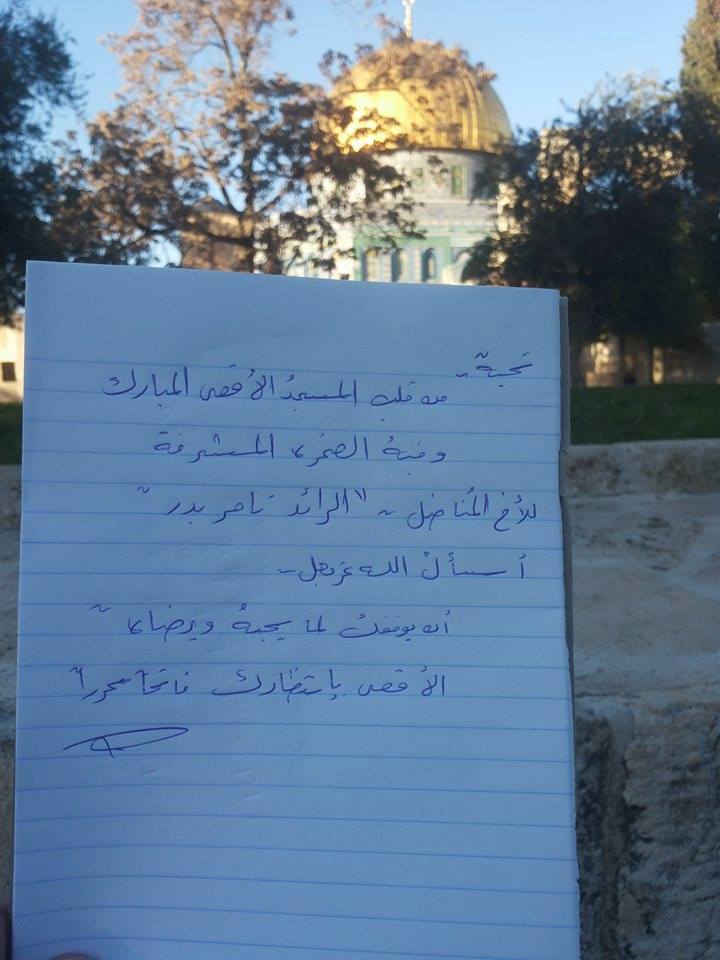 تحية ~
من قلب المسجدُ الأقصى المبارك
وقبةُ الصخرة المشرفة
للأخ المُناضل ~ "الرائد ناصر بدر"
أسألُ الله عزوجل ~
أن يوفقكُ لما يحبهُ ويرضاه ~
الأقصى بإنتظارك فاتحاً محرراً